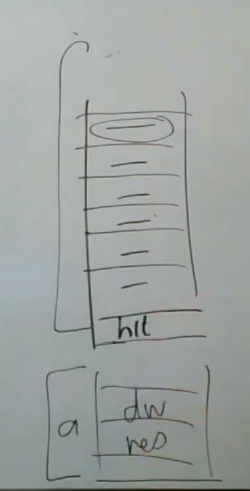 hlt
a
dw
res